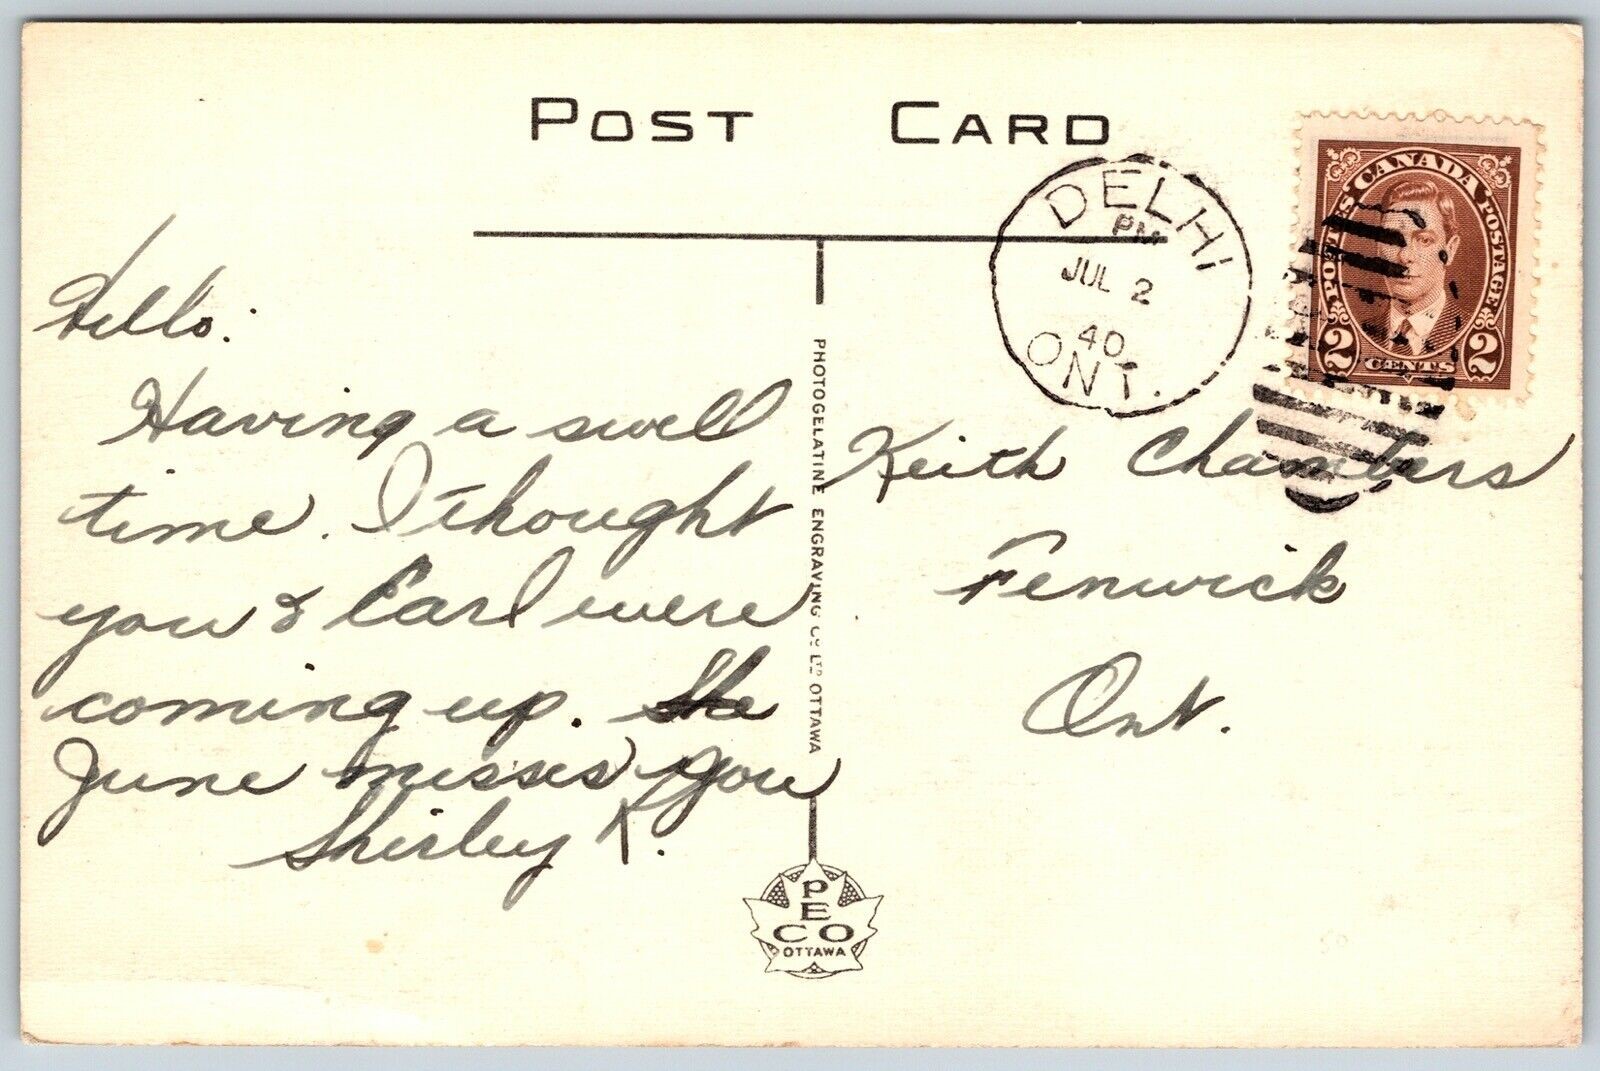 POST CARD
DELHI
PM
JUL 2
40
ONT.
POSTES CANADA POSTAGE
2 CENTS 2
Hello:
Having a swell
time. I thought
you & Earl were
coming up. She
June misses you
Shirley K.
PHOTOGELATINE ENGRAVING CO. LTD. OTTAWA
Keith Chambers
Fenwick
Ont.
PECO
OTTAWA